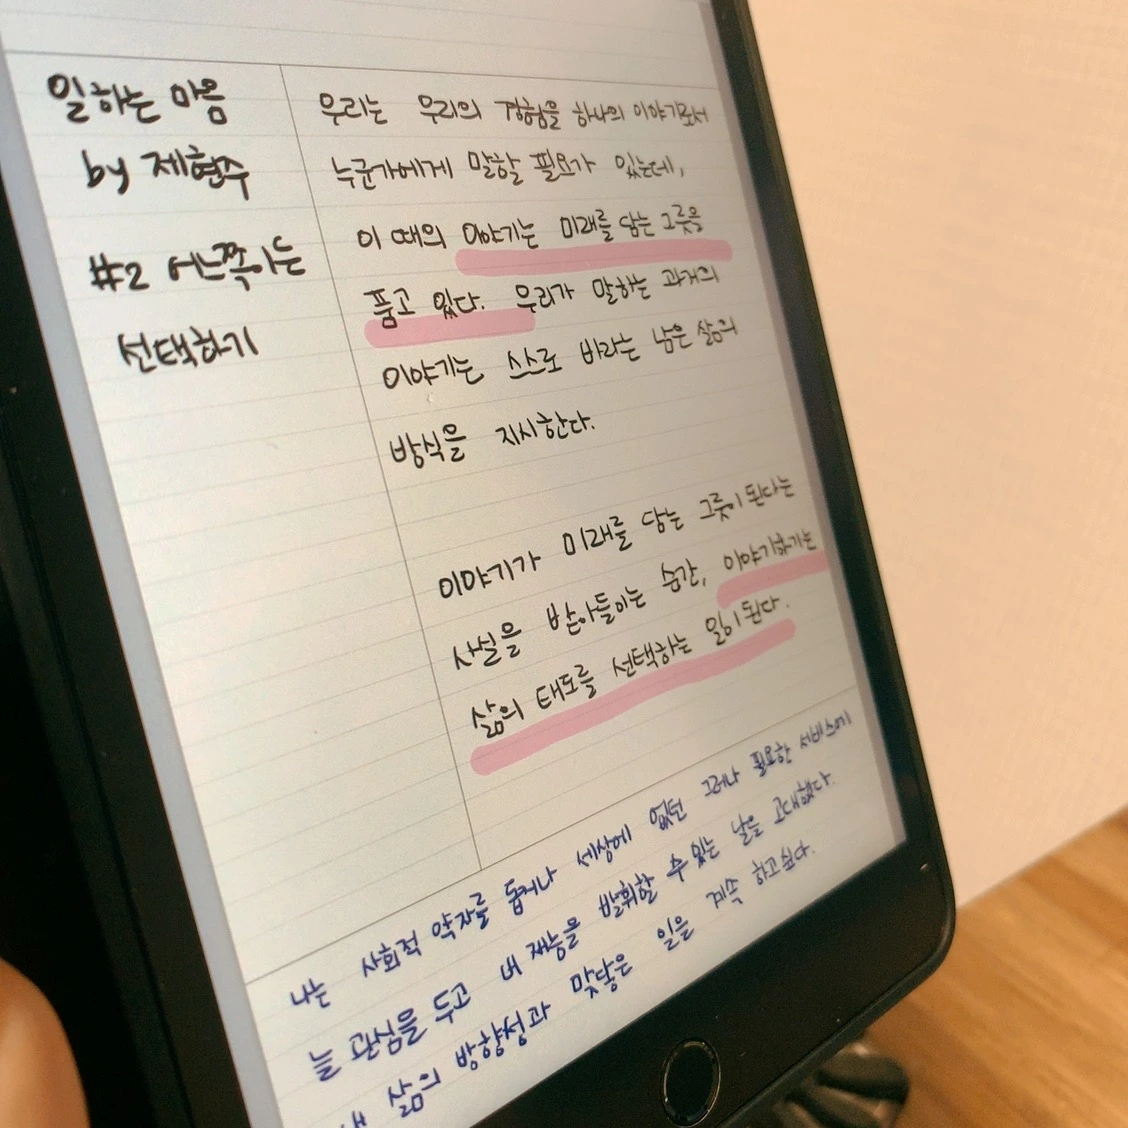 일하는 마음
by 제현주
#2 어느쪽이든
선택하기
우리는 우리의 경험을 하나의 이야기로서
누군가에게 말할 필요가 있는데,
이 때의 이야기는 미래를 담는 그릇을
품고 있다. 우리가 말하는 과거의
이야기는 스스로 바라는 남은 삶의
방식을 지시한다.
이야기가 미래를 담는 그릇이 된다는
사실을 받아들이는 순간, 이야기하기는
삶의 태도를 선택하는 일이 된다.
나는 사회적 약자를 돕거나 세상에 없던 그러나 필요한 서비스에
늘 관심을 두고 내 재능을 발휘할 수 있는 날을 고대했다.
내 삶의 방향성과 맞닿은 일을 계속 하고싶다.